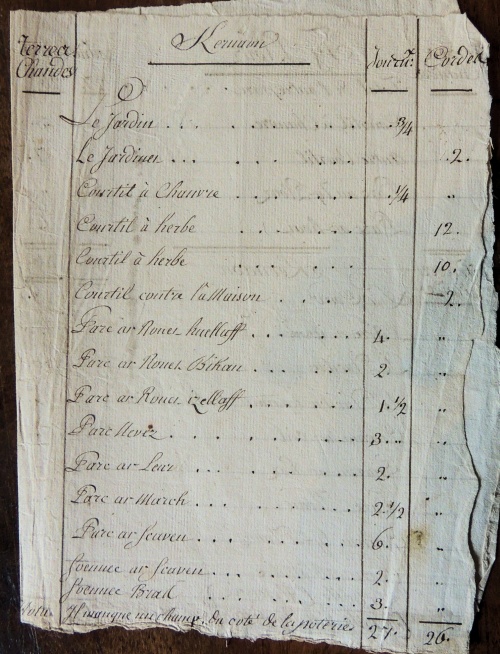 Terres Chaudes
Kernaou
Journ.
Cordes
Le Jardin . . . 3/4
Le Jardinet . . . 2.
Courtil à Chanvre . . . 1/4 "
Courtil à herbe . . . 12.
Courtil à herbe . . . 10.
Courtil contre la Maison . . . 2.
Parc ar Rouez huellaff . . . 4. "
Parc ar Rouez Bihan . . . 2. "
Parc ar Rouez izellaff . . . 1. 1/2 "
Parc Nevez . . . 3. "
Parc ar Leur . . . 2. "
Parc ar March . . . 2. 1/2 "
Parc ar feuven . . . 6. "
foennec ar feuven . . . 2. "
foennec Bras . . . 3. "
Il manque un champ du coté de la poterie 27. 26.